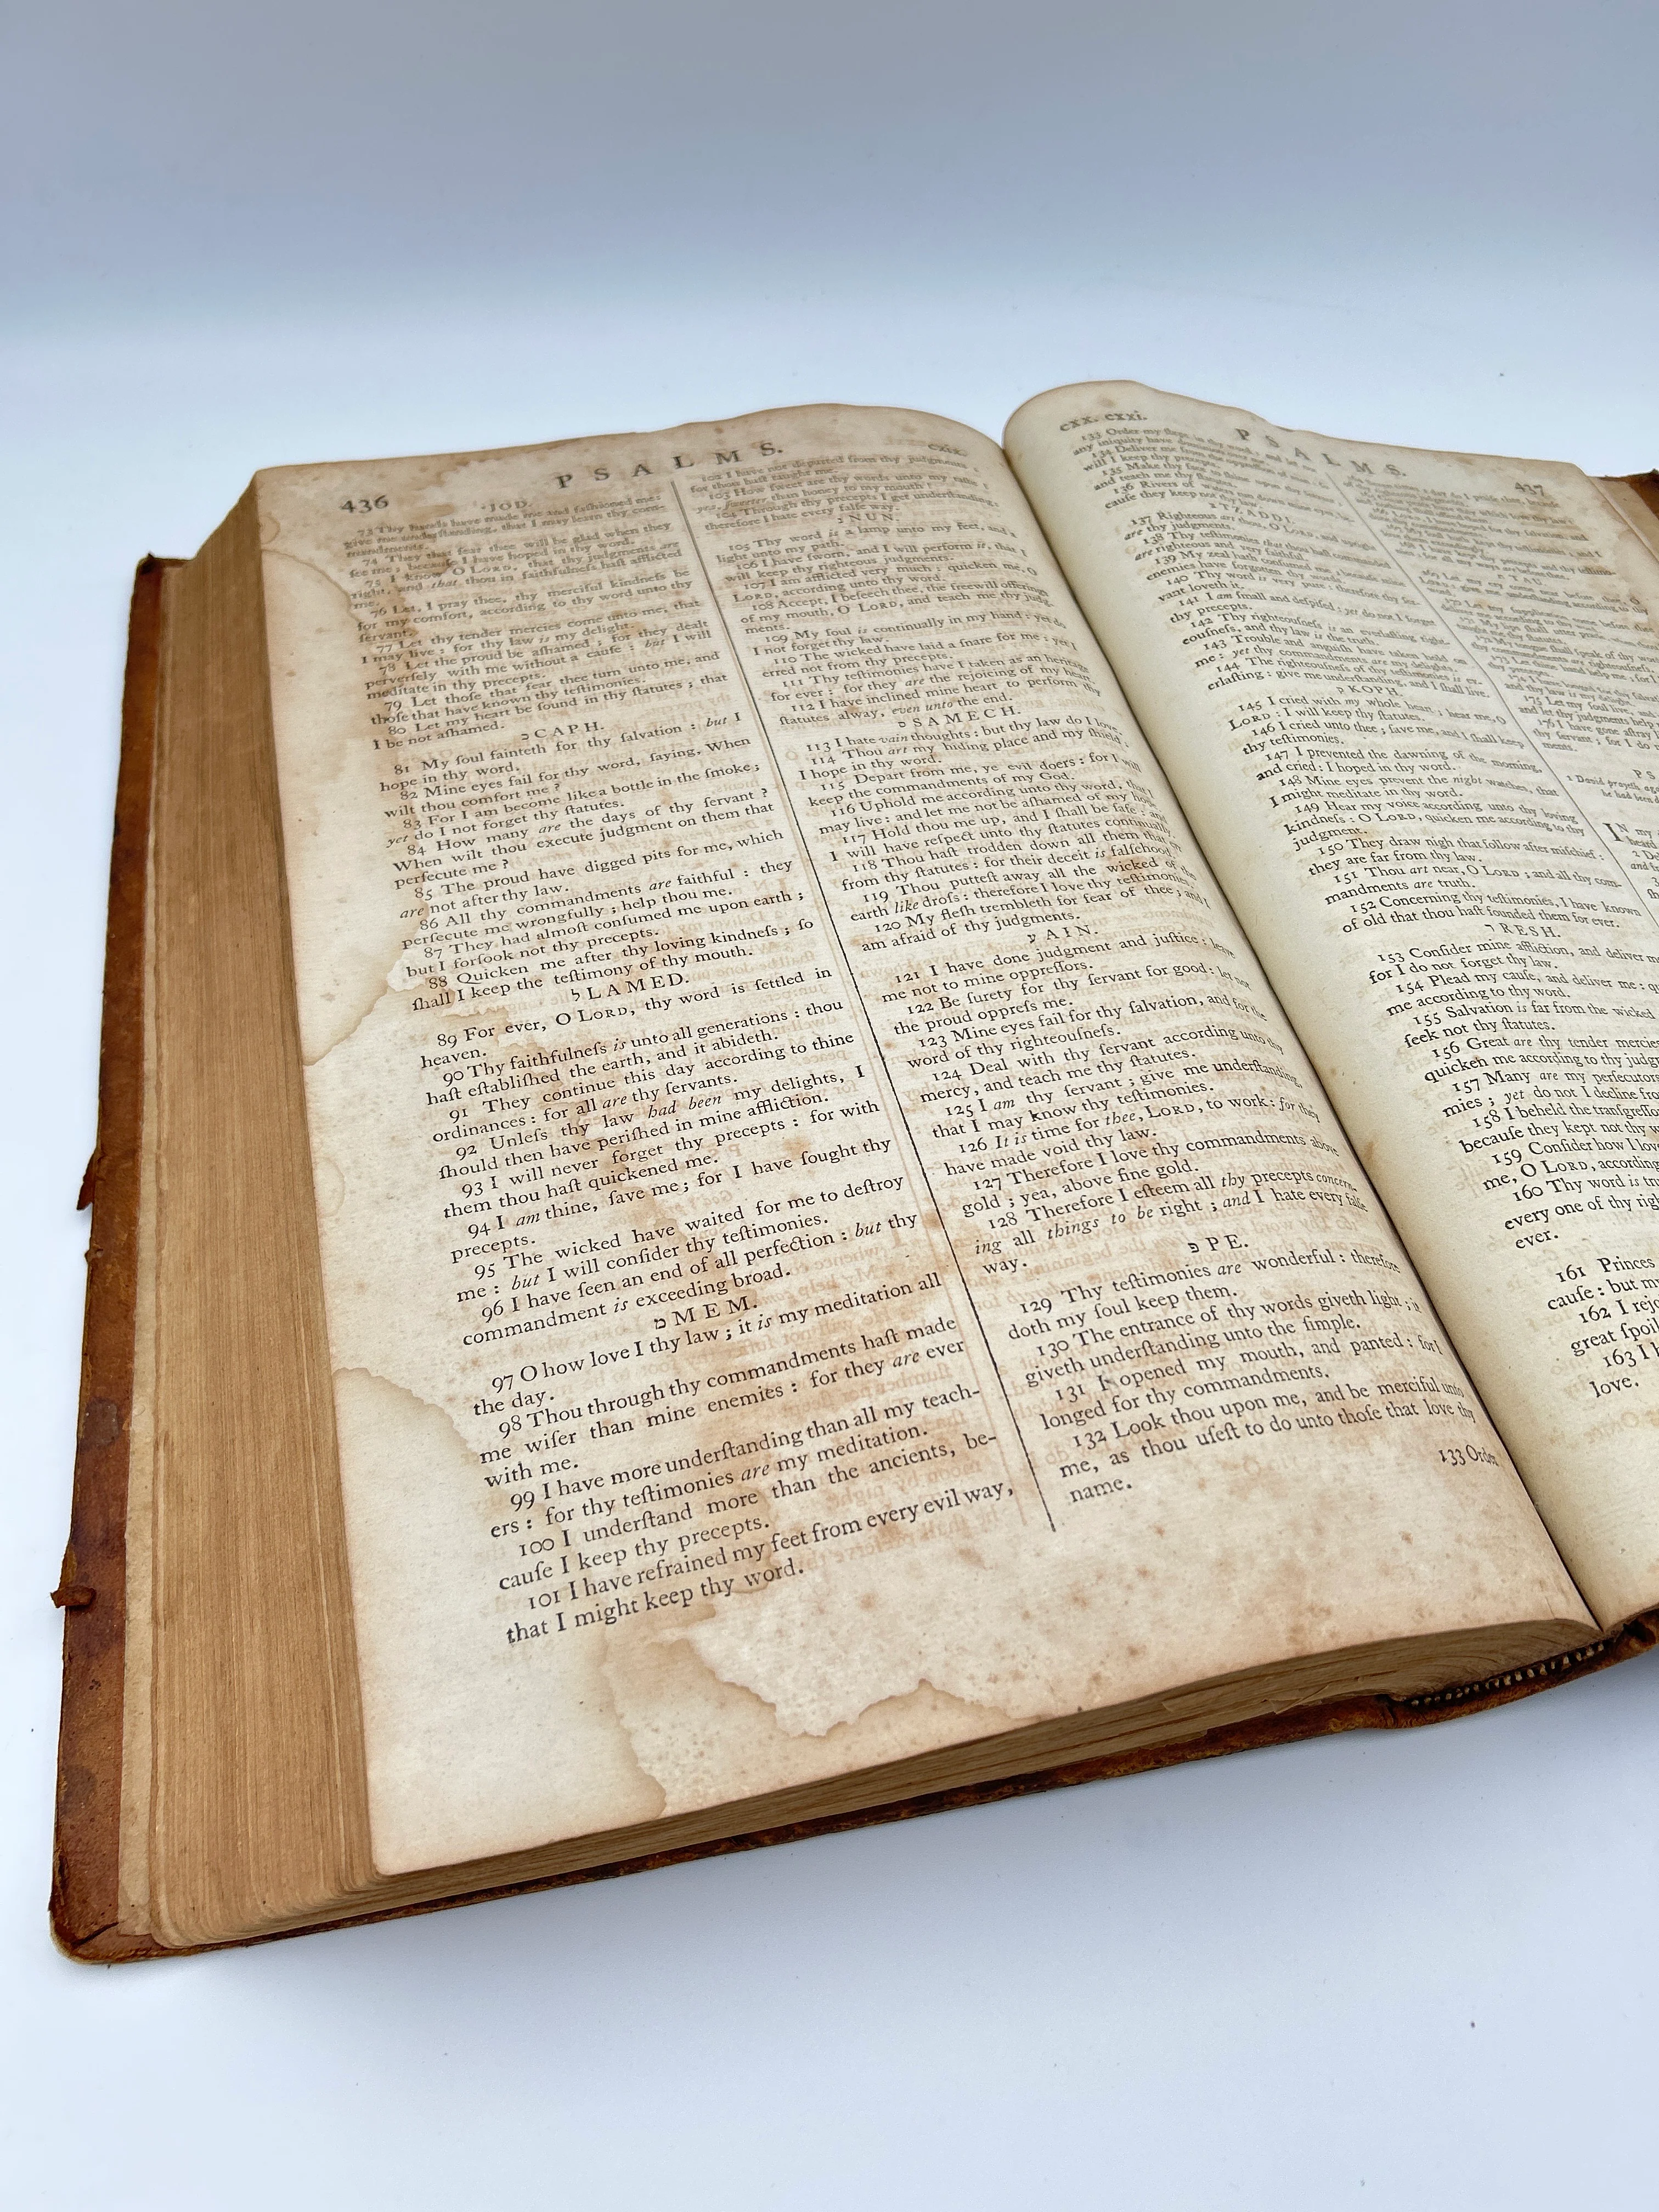 436
PSALMS.
cxix.
JOD.
73 Thy hands have made me and faſhioned me:
give me underſtanding, that I may learn thy com-
mandments.
74 They that fear thee will be glad when they
ſee me; becauſe I have hoped in thy word.
75 I know, O LORD, that thy judgments are
right, and that thou in faithfulneſs haſt afflicted
me.
76 Let, I pray thee, thy merciful kindneſs be
for my comfort, according to thy word unto thy
ſervant.
77 Let thy tender mercies come unto me, that
I may live: for thy law is my delight.
78 Let the proud be aſhamed; for they dealt
perverſely with me without a cauſe: but I will
meditate in thy precepts.
79 Let thoſe that fear thee turn unto me, and
thoſe that have known thy teſtimonies.
80 Let my heart be found in thy ſtatutes; that
I be not aſhamed.
כ CAPH.
81 My ſoul fainteth for thy ſalvation: but I
hope in thy word.
82 Mine eyes fail for thy word, ſaying, When
wilt thou comfort me?
83 For I am become like a bottle in the ſmoke;
yet do I not forget thy ſtatutes.
84 How many are the days of thy ſervant?
When wilt thou execute judgment on them that
perſecute me?
85 The proud have digged pits for me, which
are not after thy law.
86 All thy commandments are faithful: they
perſecute me wrongfully; help thou me.
87 They had almoſt conſumed me upon earth;
but I forſook not thy precepts.
88 Quicken me after thy loving kindneſs; ſo
ſhall I keep the teſtimony of thy mouth.
ל LAMED.
89 For ever, O LORD, thy word is ſettled in
heaven.
90 Thy faithfulneſs is unto all generations: thou
haſt eſtabliſhed the earth, and it abideth.
91 They continue this day according to thine
ordinances: for all are thy ſervants.
92 Unleſs thy law had been my delights, I
ſhould then have periſhed in mine affliction.
93 I will never forget thy precepts: for with
them thou haſt quickened me.
94 I am thine, ſave me; for I have ſought thy
precepts.
95 The wicked have waited for me to deſtroy
me: but I will conſider thy teſtimonies.
96 I have ſeen an end of all perfection: but thy
commandment is exceeding broad.
מ MEM.
97 O how love I thy law; it is my meditation all
the day.
98 Thou through thy commandments haſt made
me wiſer than mine enemies: for they are ever
with me.
99 I have more underſtanding than all my teach-
ers: for thy teſtimonies are my meditation.
100 I underſtand more than the ancients, be-
cauſe I keep thy precepts.
101 I have refrained my feet from every evil way,
that I might keep thy word.
102 I have not departed from thy judgments:
for thou haſt taught me.
103 How ſweet are thy words unto my taſte!
yea, ſweeter than honey to my mouth!
104 Through thy precepts I get underſtanding:
therefore I hate every falſe way.
נ NUN.
105 Thy word is a lamp unto my feet, and a
light unto my path.
106 I have ſworn, and I will perform it, that I
will keep thy righteous judgments.
107 I am afflicted very much: quicken me, O
LORD, according unto thy word.
108 Accept, I beſeech thee, the freewill offerings
of my mouth, O LORD, and teach me thy judg-
ments.
109 My ſoul is continually in my hand: yet do
I not forget thy law.
110 The wicked have laid a ſnare for me: yet I
erred not from thy precepts.
111 Thy teſtimonies have I taken as an heritage
for ever: for they are the rejoicing of my heart.
112 I have inclined mine heart to perform thy
ſtatutes alway, even unto the end.
ס SAMECH.
113 I hate vain thoughts: but thy law do I love.
114 Thou art my hiding place and my ſhield:
I hope in thy word.
115 Depart from me, ye evil doers: for I will
keep the commandments of my God.
116 Uphold me according unto thy word, that I
may live: and let me not be aſhamed of my hope.
117 Hold thou me up, and I ſhall be ſafe: and
I will have reſpect unto thy ſtatutes continually.
118 Thou haſt trodden down all them that err
from thy ſtatutes: for their deceit is falſehood.
119 Thou putteſt away all the wicked of the
earth like droſs: therefore I love thy teſtimonies.
120 My fleſh trembleth for fear of thee; and I
am afraid of thy judgments.
ע AIN.
121 I have done judgment and juſtice: leave
me not to mine oppreſſors.
122 Be ſurety for thy ſervant for good: let not
the proud oppreſs me.
123 Mine eyes fail for thy ſalvation, and for the
word of thy righteouſneſs.
124 Deal with thy ſervant according unto thy
mercy, and teach me thy ſtatutes.
125 I am thy ſervant; give me underſtanding,
that I may know thy teſtimonies.
126 It is time for thee, LORD, to work: for they
have made void thy law.
127 Therefore I love thy commandments above
gold; yea, above fine gold.
128 Therefore I eſteem all thy precepts concern-
ing all things to be right; and I hate every falſe
way.
פ PE.
129 Thy teſtimonies are wonderful: therefore
doth my ſoul keep them.
130 The entrance of thy words giveth light; it
giveth underſtanding unto the ſimple.
131 I opened my mouth, and panted: for I
longed for thy commandments.
132 Look thou upon me, and be merciful unto
me, as thou uſeſt to do unto thoſe that love thy
name.
133 Order
cxx. cxxi.
PSALMS.
437
133 Order my ſteps in thy word: and let not
any iniquity have dominion over me.
134 Deliver me from the oppreſſion of man: ſo
will I keep thy precepts.
135 Make thy face to ſhine upon thy ſervant;
and teach me thy ſtatutes.
136 Rivers of waters run down mine eyes, be-
cauſe they keep not thy law.
TZADDI.
137 Righteous art thou, O LORD, and upright
are thy judgments.
138 Thy teſtimonies that thou haſt commanded
are righteous and very faithful.
139 My zeal hath conſumed me, becauſe mine
enemies have forgotten thy words.
140 Thy word is very pure: therefore thy ſer-
vant loveth it.
141 I am ſmall and deſpiſed: yet do not I forget
thy precepts.
142 Thy righteouſneſs is an everlaſting right-
eouſneſs, and thy law is the truth.
143 Trouble and anguiſh have taken hold on
me: yet thy commandments are my delights.
144 The righteouſneſs of thy teſtimonies is ev-
erlaſting: give me underſtanding, and I ſhall live.
ק KOPH.
145 I cried with my whole heart; hear me, O
LORD: I will keep thy ſtatutes.
146 I cried unto thee; ſave me, and I ſhall keep
thy teſtimonies.
147 I prevented the dawning of the morning,
and cried: I hoped in thy word.
148 Mine eyes prevent the night watches, that
I might meditate in thy word.
149 Hear my voice according unto thy loving
kindneſs: O LORD, quicken me according to thy
judgment.
150 They draw nigh that follow after miſchief:
they are far from thy law.
151 Thou art near, O LORD; and all thy com-
mandments are truth.
152 Concerning thy teſtimonies, I have known
of old that thou haſt founded them for ever.
ר RESH.
153 Conſider mine affliction, and deliver me
for I do not forget thy law.
154 Plead my cauſe, and deliver me: qu
me according to thy word.
155 Salvation is far from the wicked
ſeek not thy ſtatutes.
156 Great are thy tender mercies
quicken me according to thy judgm
157 Many are my perſecutors
mies; yet do not I decline fro
158 I beheld the tranſgreſſo
becauſe they kept not thy w
159 Conſider how I love
me, O LORD, according
160 Thy word is tru
every one of thy righ
ever.
161 Princes
cauſe: but my
162 I rejo
great ſpoil
163 I h
love.
TAU.
175 Let my ſoul live, and
and let thy judgments help
176 I have gone aſtray l
thy ſervant; for I do n
ments.
PS
1 David prayeth, aga
he had been d
IN my
heard
2 De
and fr